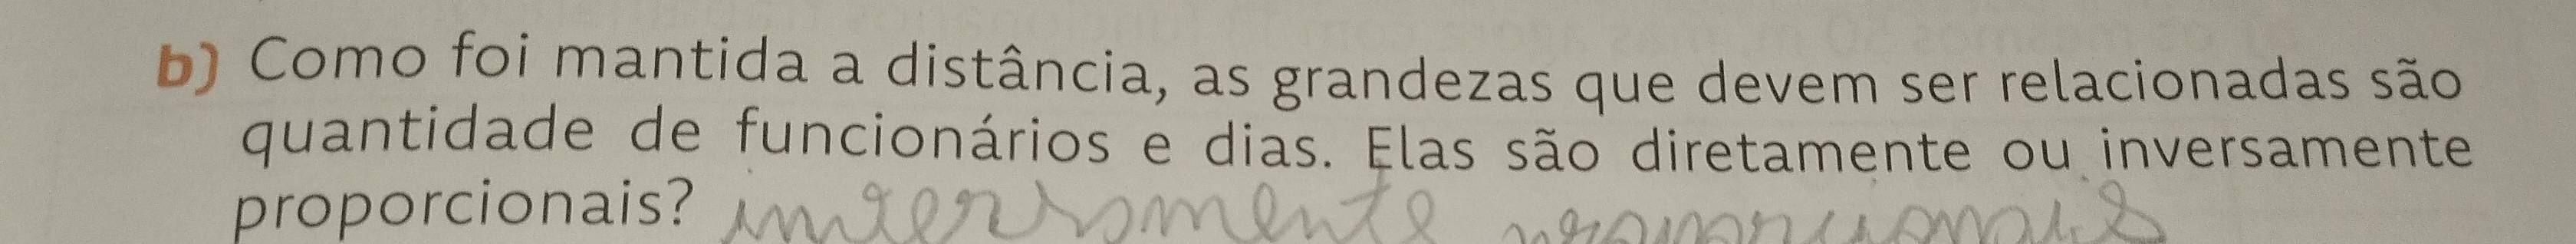 b) Como foi mantida a distância, as grandezas que devem ser relacionadas são
quantidade de funcionários e dias. Elas são diretamente ou inversamente
proporcionais? interrsomente proporcionais